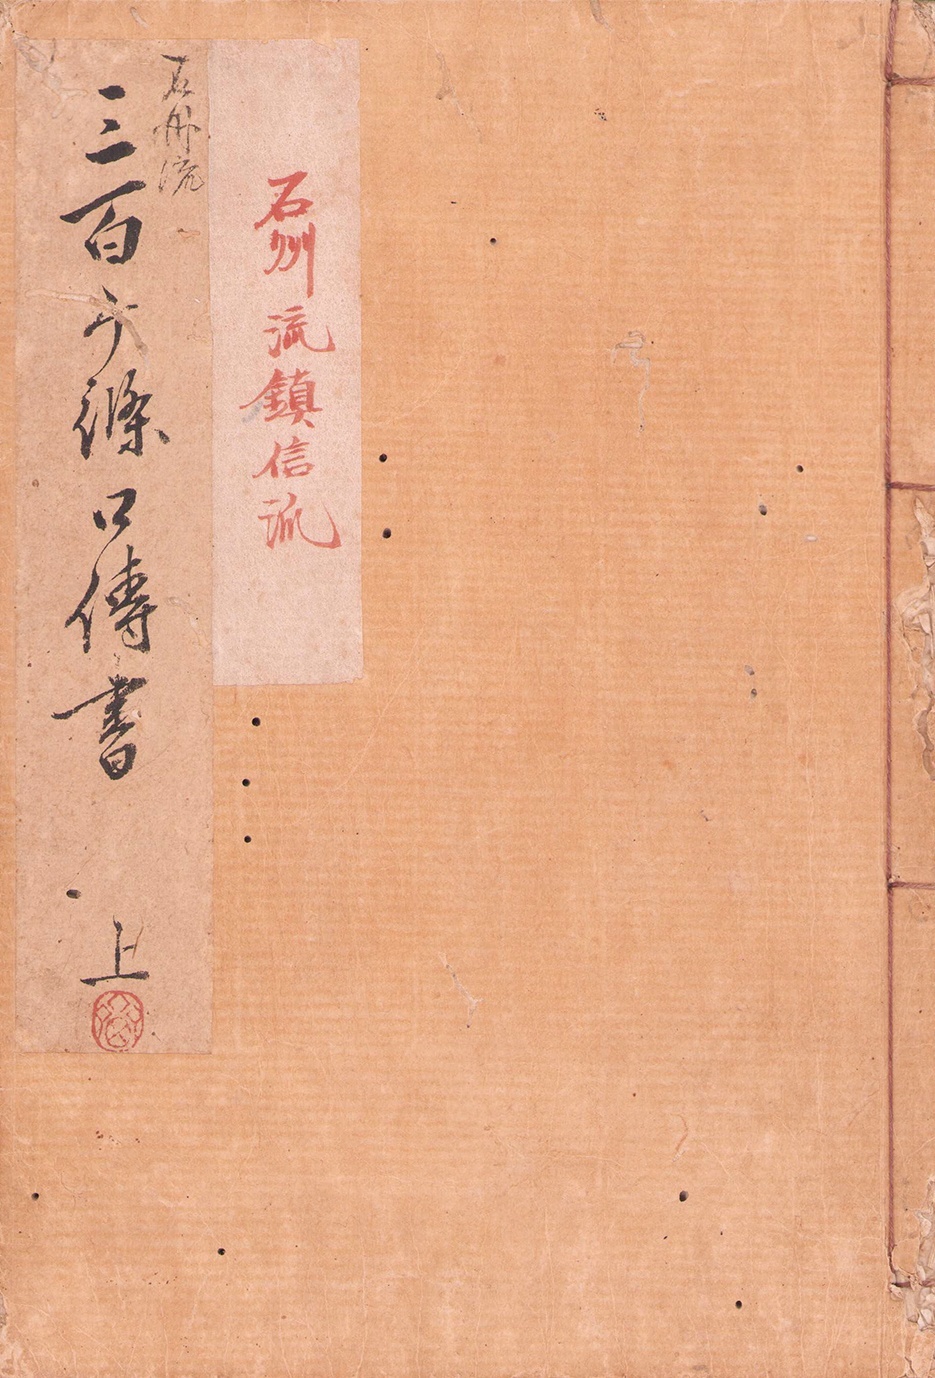 石州流鎮信流
石州流
三百ケ條口傳書 上